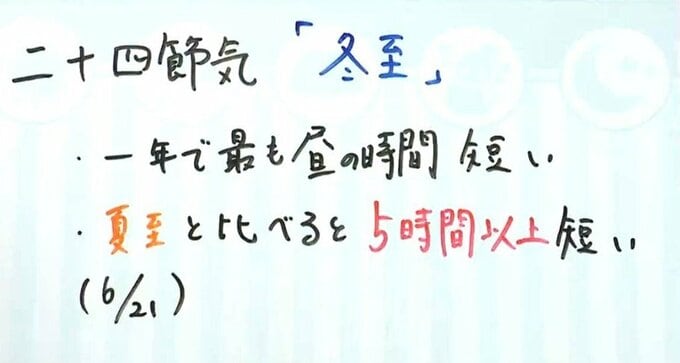 二十四節気「冬至」
・一年で最も昼の時間 短い
・夏至と比べると5時間以上短い
(6/21)